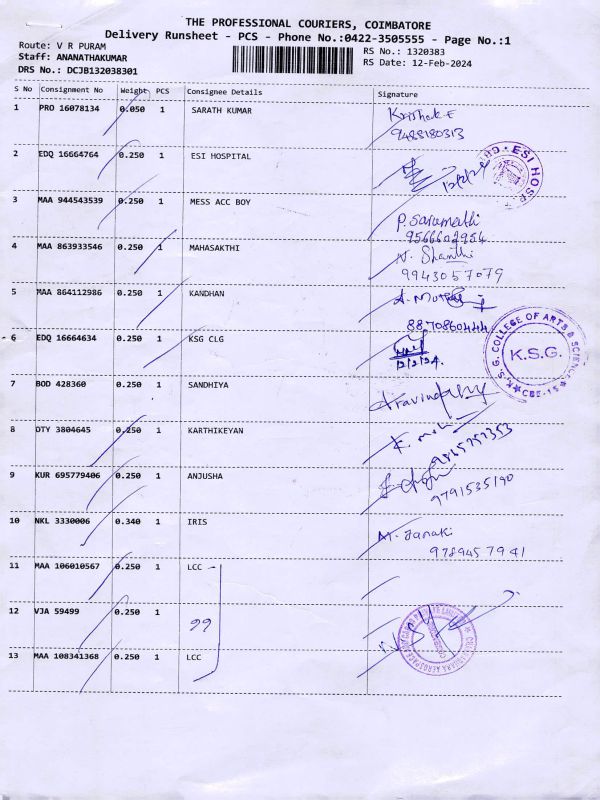 THE PROFESSIONAL COURIERS, COIMBATORE
Delivery Runsheet - PCS - Phone No.:0422-3505555 - Page No.:1
Route: V R PURAM
RS No.: 1320383
Staff: ANANATHAKUMAR
RS Date: 12-Feb-2024
DRS No.: DCJB132038301
S No Consignment No Weight PCS Consignee Details Signature
1 PRO 16078134 0.050 1 SARATH KUMAR
9488180313
2 EDQ 16664764 0.250 1 ESI HOSPITAL
12/2/24
ESI HOSP
3 MAA 944543539 0.250 1 MESS ACC BOY
P. Sarumathi
9566602954
4 MAA 863933546 0.250 1 MAHASAKTHI
N. Shanthi
9943057079
5 MAA 864112986 0.250 1 KANDHAN
8870860444
6 EDQ 16664634 0.250 1 KSG CLG
12/2/24.
K.S.G. COLLEGE OF ARTS & SCIENCE
K.S.G.
CBE-15
7 BOD 428360 0.250 1 SANDHIYA
Aravind
8 DTY 3804645 0.250 1 KARTHIKEYAN
9865757353
9 KUR 695779406 0.250 1 ANJUSHA
9791535190
10 NKL 3330006 0.340 1 IRIS
M. Janaki
9789457941
11 MAA 106010567 0.250 1 LCC
12 VJA 59499 0.250 1 ”
13 MAA 108341368 0.250 1 LCC